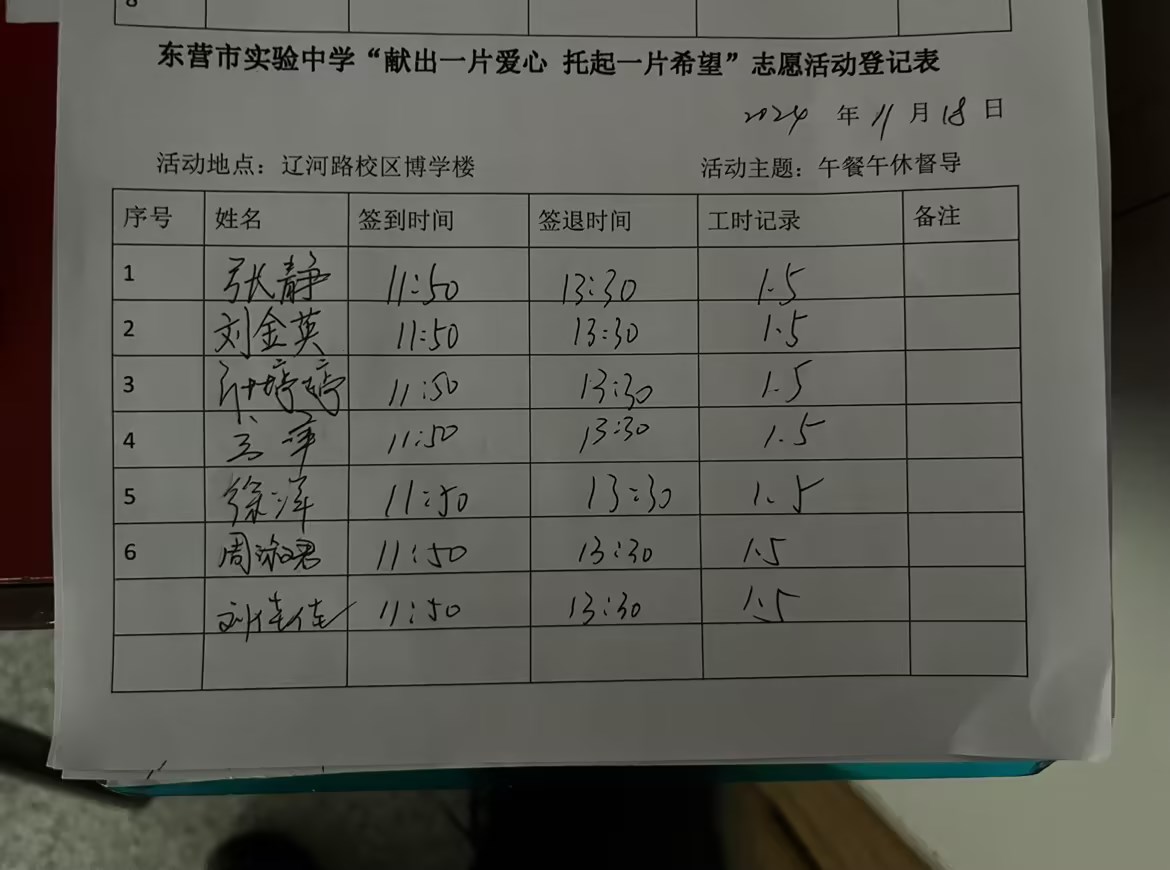 8
东营市实验中学“献出一片爱心 托起一片希望”志愿活动登记表
2024 年 11 月 18 日
活动地点：辽河路校区博学楼 活动主题：午餐午休督导
序号 姓名 签到时间 签退时间 工时记录 备注
1 张静 11:50 13:30 1.5
2 刘金英 11:50 13:30 1.5
3 婷婷 11:50 13:30 1.5
4 11:50 13:30 1.5
5 徐洋 11:50 13:30 1.5
6 周淑君 11:50 13:30 1.5
刘佳佳 11:50 13:30 1.5